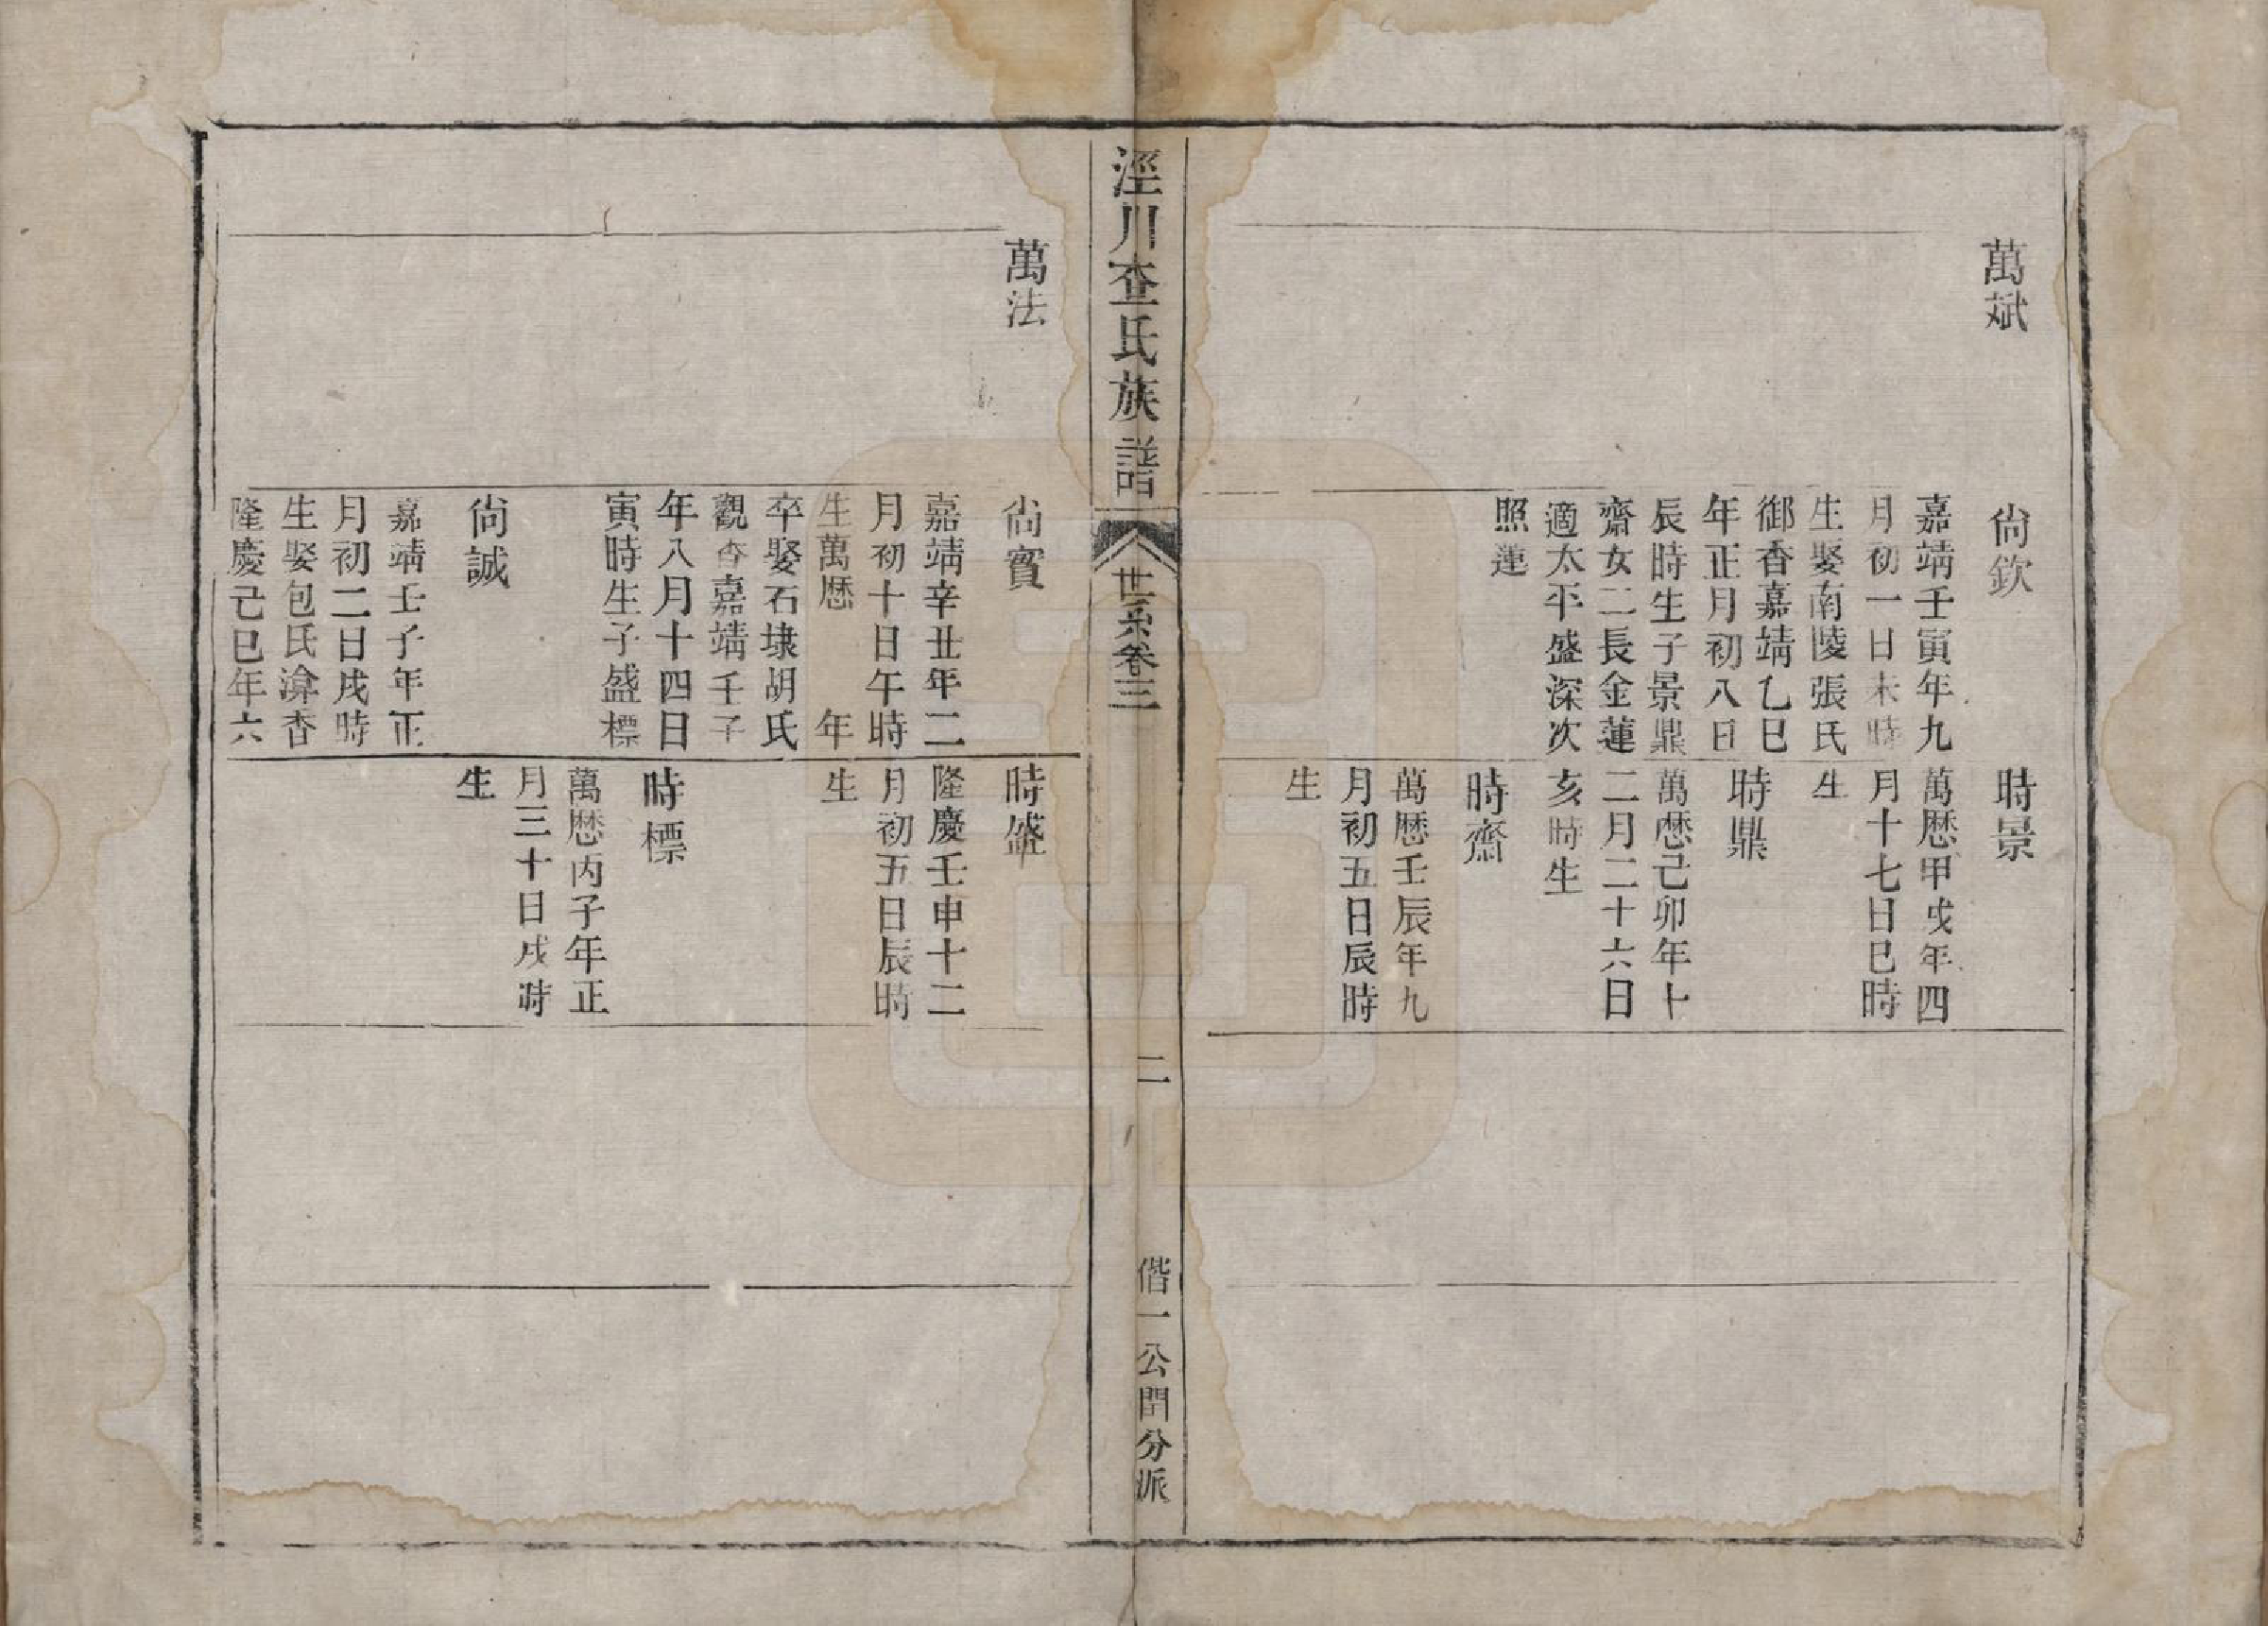 萬斌
尙欽
嘉靖壬寅年九
月初一日未時
生娶南陵張氏
御香嘉靖乙巳
年正月初八日
辰時生子景鼎
齋女二長金蓮
適太平盛深次
照蓮
時景
萬厯甲戌年四
月十七日巳時
生
時鼎
萬厯己卯年十
二月二十六日
亥時生
時齋
萬厯壬辰年九
月初五日辰時
生
涇川查氏族譜
世系卷三
二
偕一公閏分派
萬法
尙賓
嘉靖辛丑年二
月初十日午時
生萬厯 年
卒娶石埭胡氏
觀杏嘉靖壬子
年八月十四日
寅時生子盛標
尙誠
嘉靖壬子年正
月初二日戌時
生娶包氏渰杏
隆慶己巳年六
時盛
隆慶壬申十二
月初五日辰時
生
時標
萬厯丙子年正
月三十日戌時
生